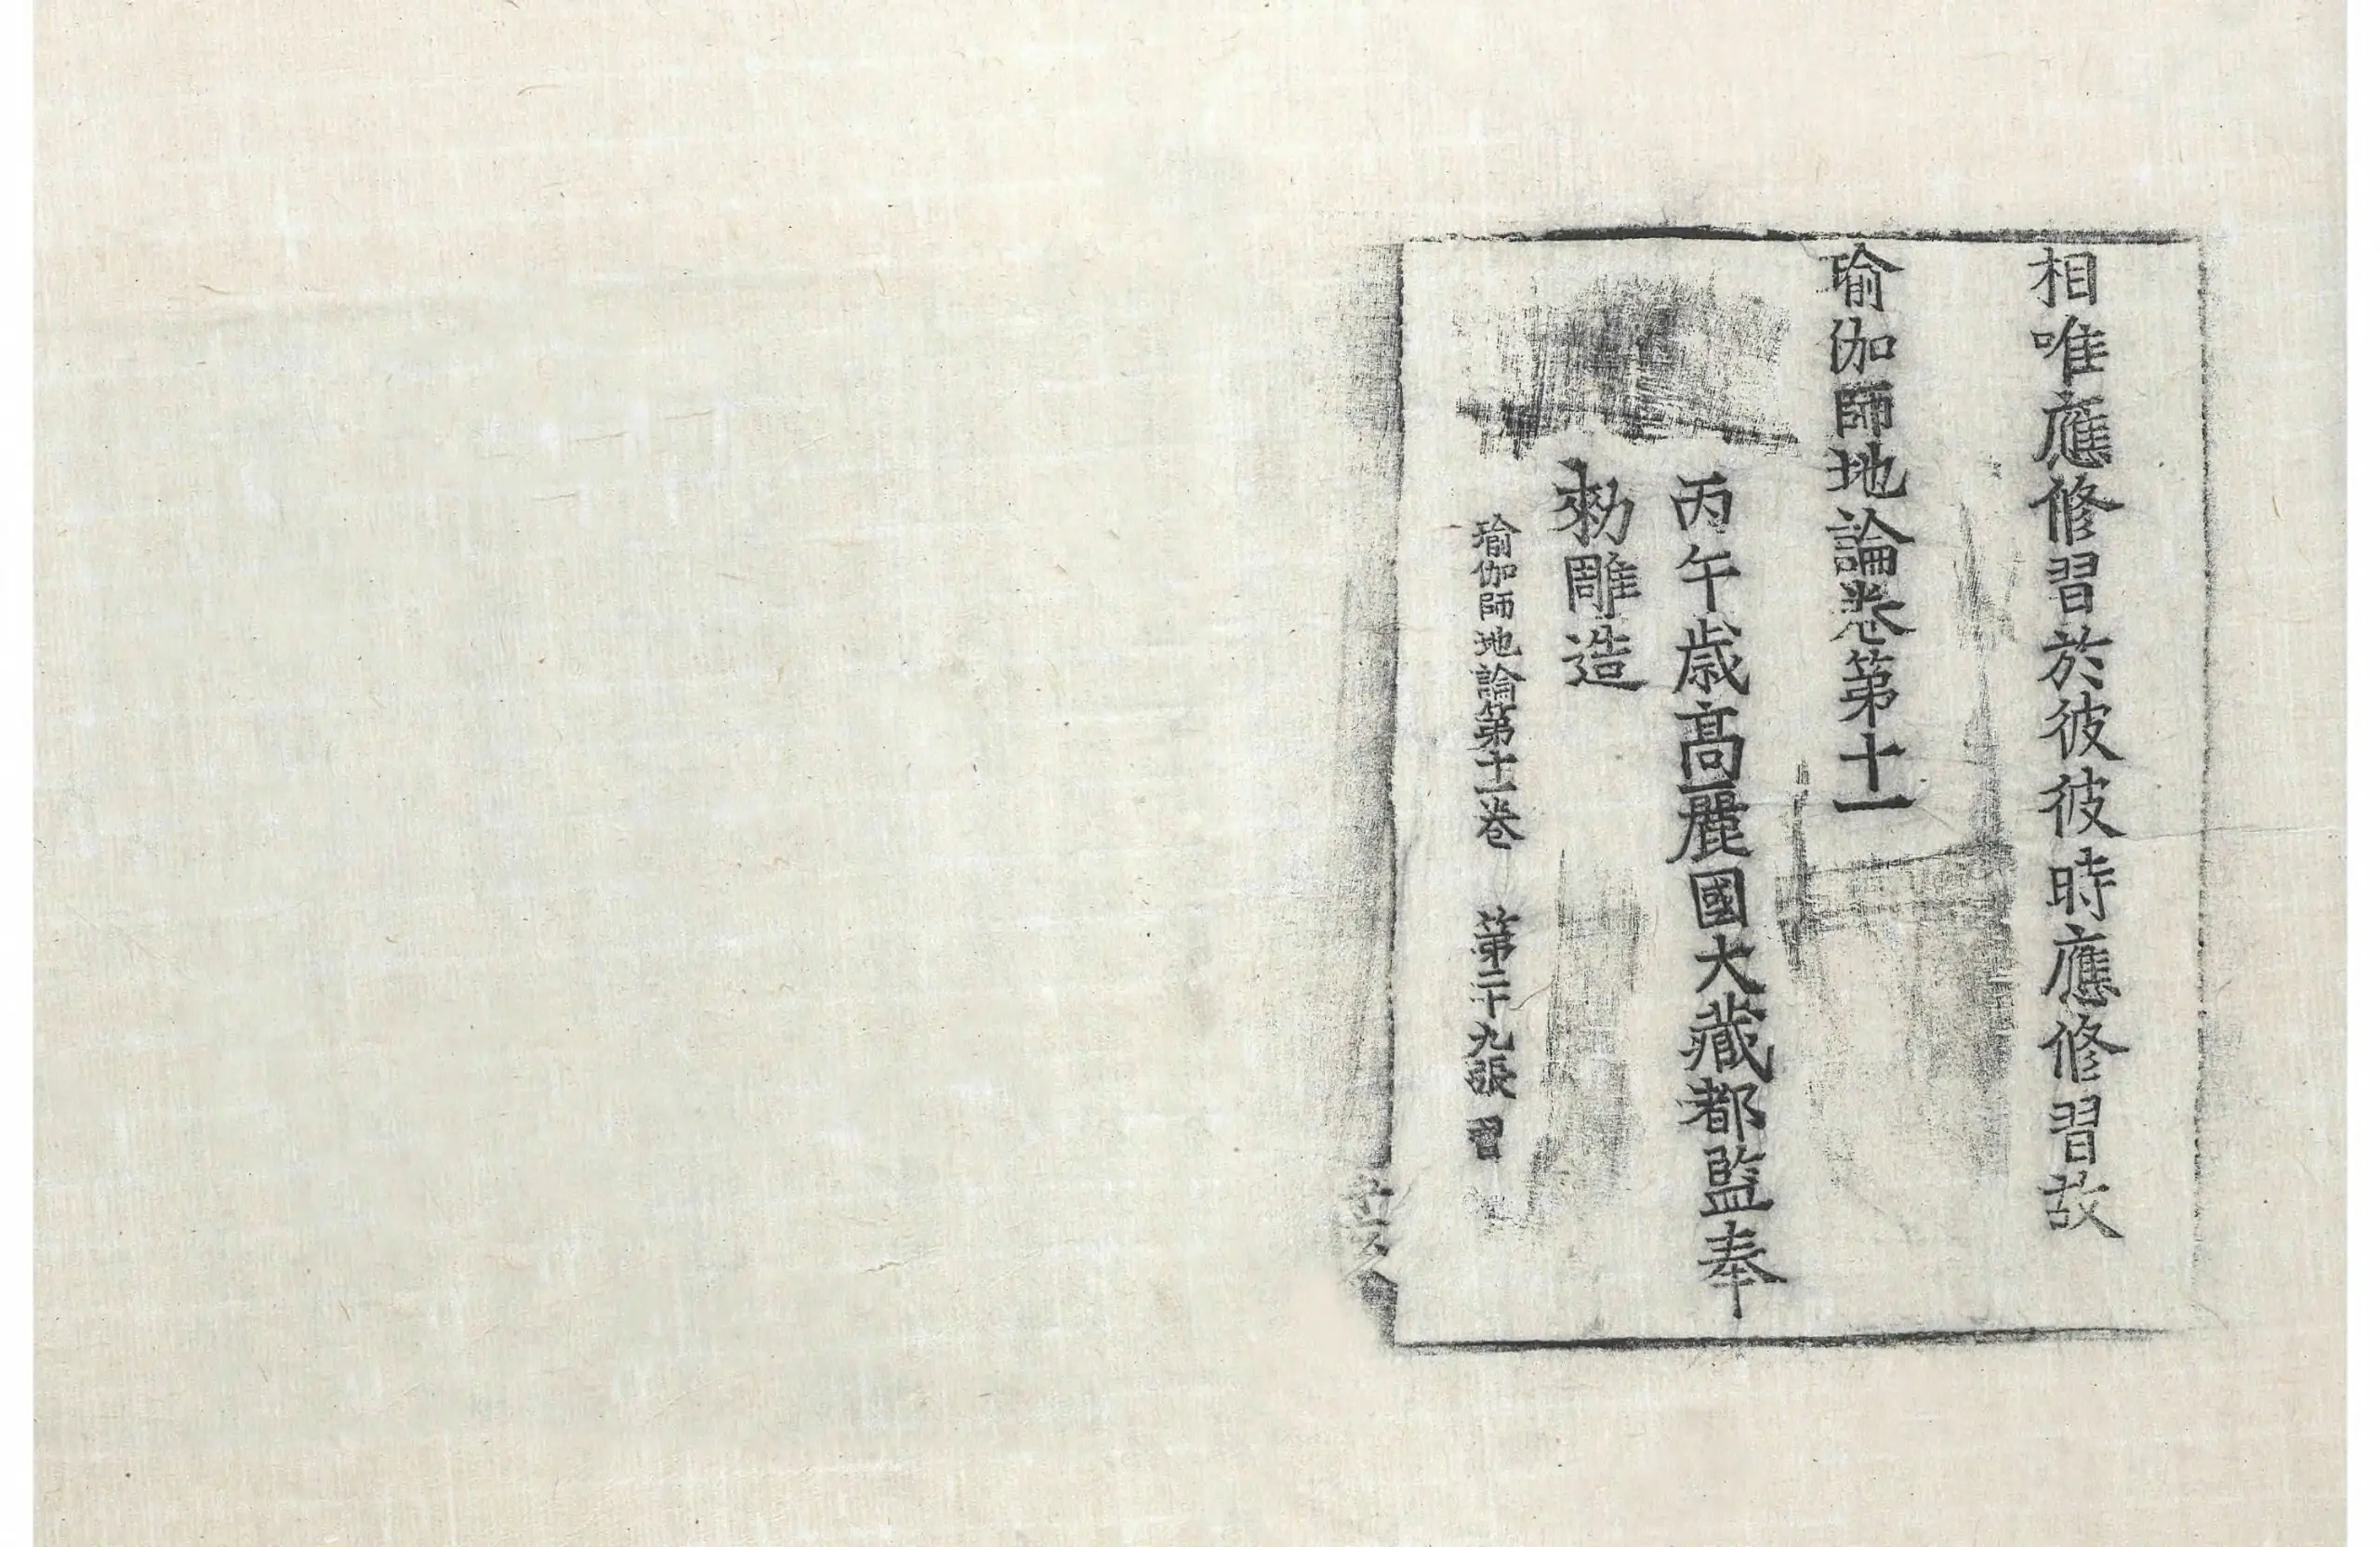 相唯應修習於彼彼時應修習故
瑜伽師地論卷第十一
丙午歲高麗國大藏都監奉
勑雕造
瑜伽師地論第十一卷 第二十九張 習